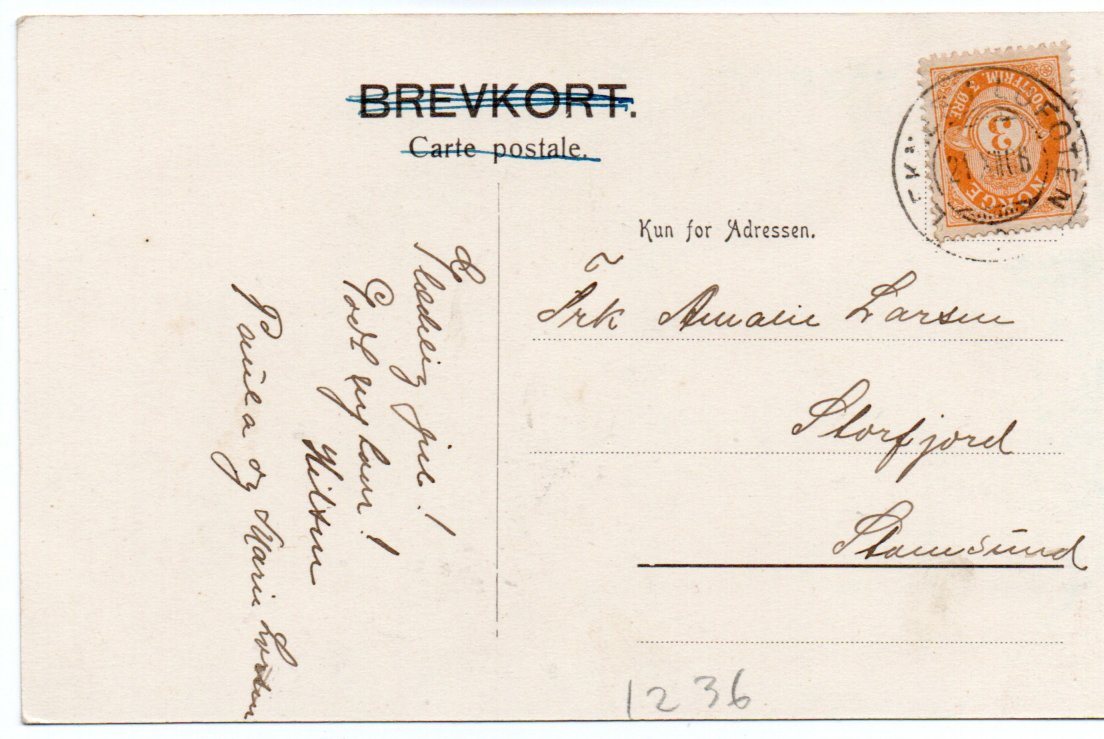 BREVKORT.
Carte postale.
Kun for Adressen.
POSTFRIM. 3 ØRE
3
NORGE
LOFOTEN
21 XII 06
Frk Amalie Larsen
Storfjord
Stamsund
Glædelig jul!
Godt nytaar!
Hilsen
Paula og Marie Larsen
1236